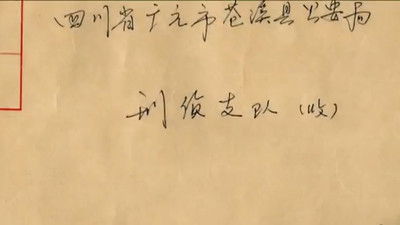 四川省广元市苍溪县公安局
刑侦支队(收)